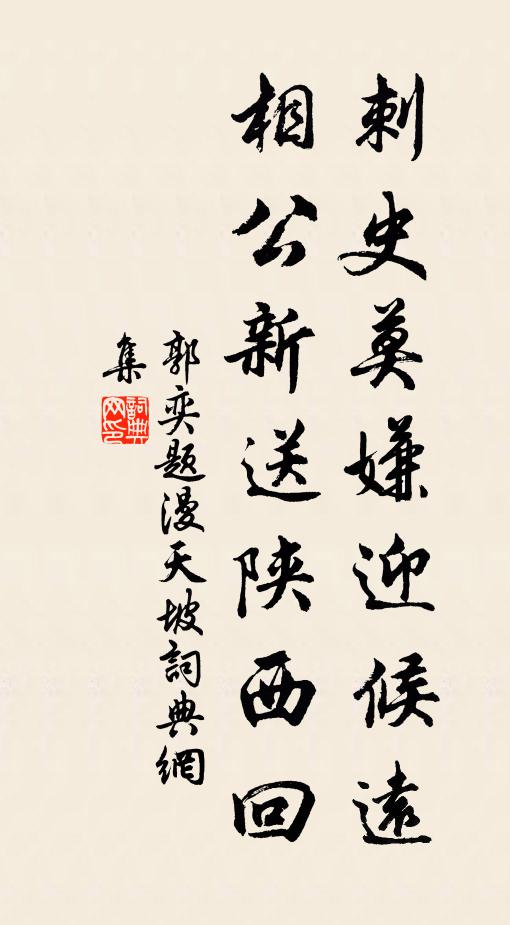 刺史莫嫌迎候遠
相公新送陝西回
郭奕題漫天坡詞典網
集
詞典網印